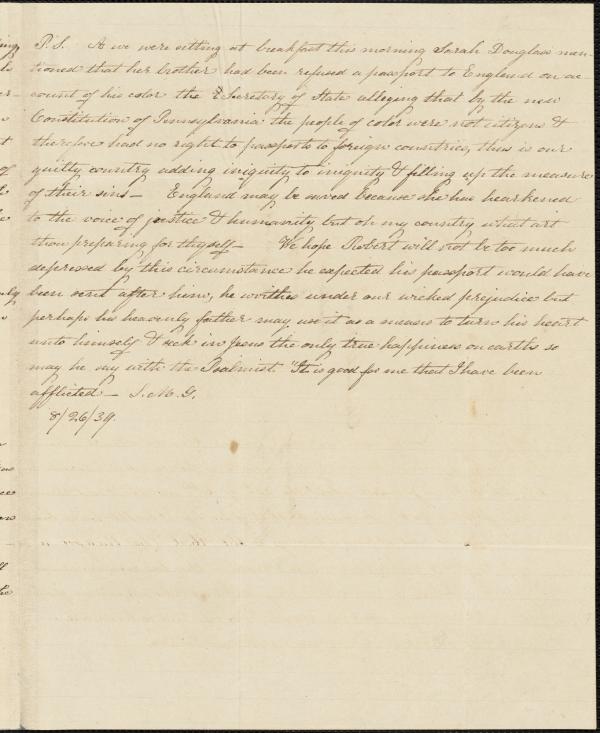 P.S. As we were sitting at breakfast this morning Sarah Douglass men-
tioned that her brother had been refused a passport to England on ac-
count of his color the Secretary of State alleging that by the new
Constitution of Pennsylvania the people of color were not citizens &
therefore had no right to passports to foreign countries, thus is our
guilty country adding iniquity to iniquity & filling up the measure
of their sins— England may be saved because she has hearkened
to the voice of justice & humanity but oh my country what art
thou preparing for thyself— We hope Robert will not be too much
depressed by this circumstance he expected his passport would have
been sent after him, he writhes under our wicked prejudice but
perhaps his heavenly father may use it as a means to turn his heart
unto himself & seek in Jesus the only true happiness on earth so
may he say with the Psalmist "It is good for me that I have been
afflicted— S.M.G.
8/26/39.